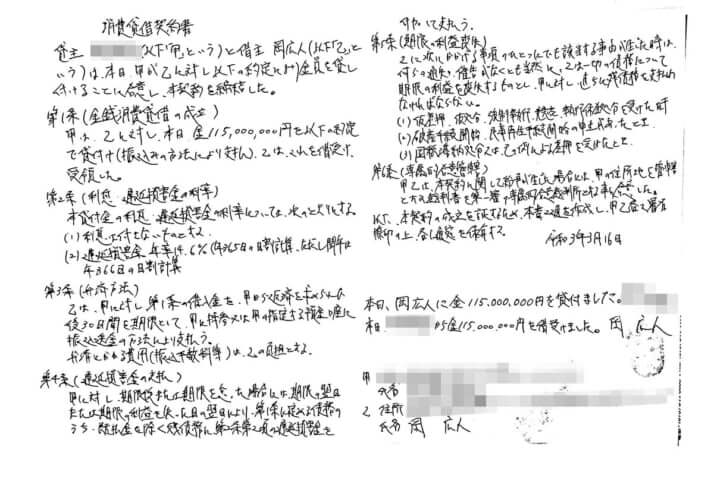 消費貸借契約書
貸主 (以下「甲」という)と借主 岡広人(以下「乙」と
いう)は、本日、甲が乙に対し以下の約定により金員を貸し
付けることに合意し、本契約を締結した。
第1条(金銭消費貸借の成立)
甲は、乙に対し、本日、金115,000,000円を以下の約定
で貸付け(振込みの方法により支払)、乙は、これを借受け、
受領した。
第2条(利息、遅延損害金の利率)
本貸付金の利息、遅延損害金の利率については、次のとおりとする。
(1)利息は付せないものとする。
(2)遅延損害金 年率14.6%(年365日の日割計算、ただし閏年は
年366日の日割計算
第3条(弁済方法)
乙は、甲に対し、第1条の借入金を、甲から返済を求められた
後30日間を期限として、甲に持参又は甲の指定する預金口座に
振込送金の方法により支払う。
お店にかかる費用(振込手数料等)は、乙の負担とする。
第4条(遅延損害金の支払)
甲に対し、期限後または期限を怠った場合には、期限の翌日
または期限の利益を失った日の翌日より、第1条に定める債務の
うち、既払金を除く残債務に第2条第2項の遅延損害金を
付して支払う。
第5条(期限の利益喪失)
乙に次にかかげる事項のひとつにでも該当する事由が生じた時は、
何らの通知、催告がなくとも当然に、乙は一切の債務について
期限の利益を喪失するものとし、甲に対し、直ちに残債務を支払わ
なければならない。
(1)仮差押、仮処分、強制執行、競売、執行保全処分を受けた時
(2)破産手続開始、民事再生手続開始の申立があったとき
(3)国税滞納処分又は、その例による差押を受けたとき
第6条(専属的合意管轄)
甲乙は、本契約に関して紛争が生じた場合には、甲の住所地を管轄
とする裁判所を第一審の専属的合意裁判所とする事に合意した。
以上、本契約の成立を証するため、本書二通を作成し、甲乙各々署名
捺印の上、各1通宛を保有する。
令和3年3月16日
本日、岡広人に金115,000,000円を貸付ました。
本日、 から金115,000,000円を借受けました。岡 広人
甲
氏名
乙 住所
氏名 岡 広人